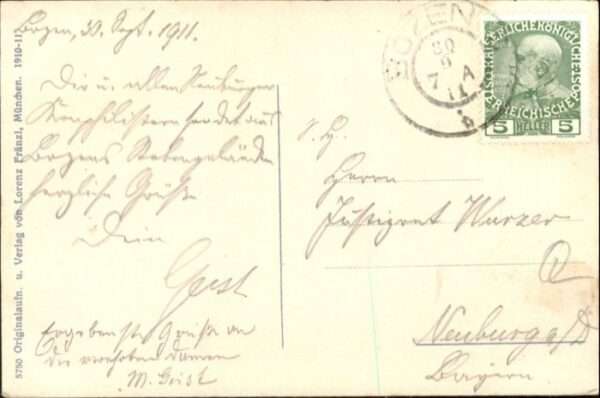 Bozen, 30. Sept. 1911.
Dir u. allen Neuburger
Kneiphilistern sendet aus
Bozens Rebengelände
herzliche Grüße
Dein
Geist
Ergebenste Grüße an
die verehrten Damen
M. Geist
S. H.
Herrn
Justizrat Wurzer
Neuburg a/D
Bayern
BOZEN
30
9
7 A
11
b
KAISERLICHE KÖNIGLICHE
ÖSTERREICHISCHE POST
5 HELLER 5
5750 Originalaufn. u. Verlag von Lorenz Fränzl, München. 1910-11